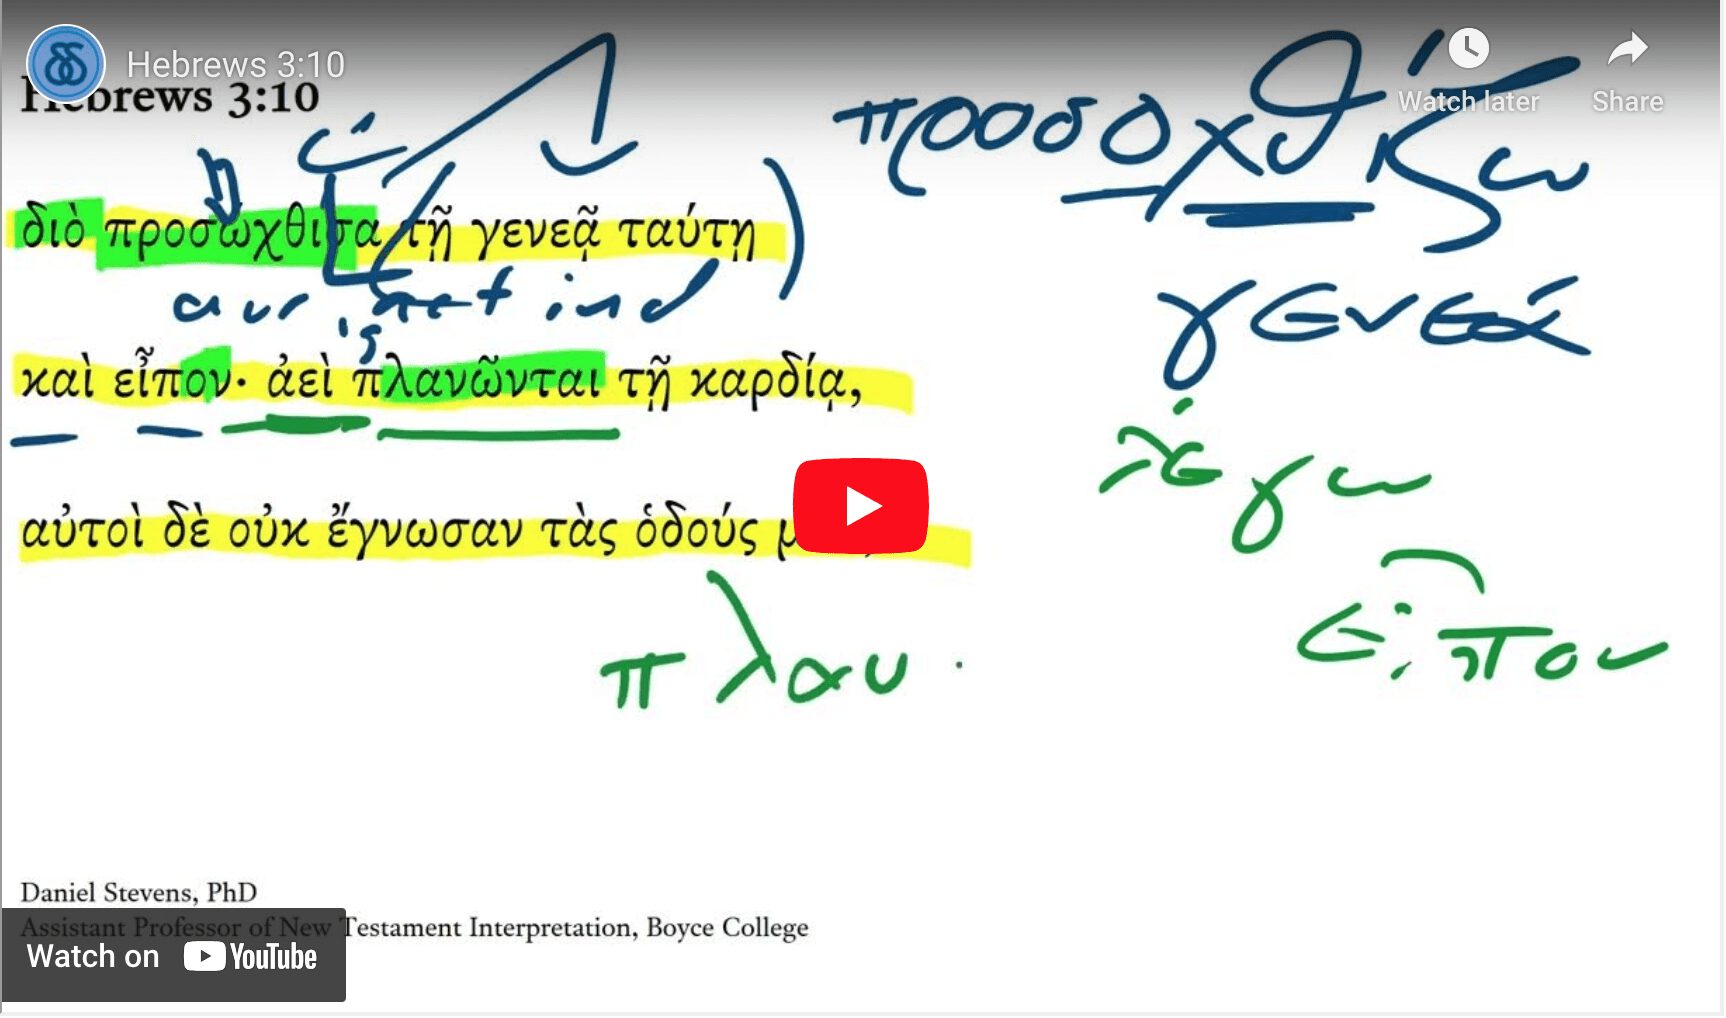 Hebrews 3:10
Watch later
Share
Hebrews 3:10
προσοχθίζω
διὸ προσώχθισα τῇ γενεᾷ ταύτῃ
aor act ind
1s
γενεά
καὶ εἶπον· ἀεὶ πλανῶνται τῇ καρδίᾳ,
λέγω
αὐτοὶ δὲ οὐκ ἔγνωσαν τὰς ὁδούς
εἶπον
πλαν
Daniel Stevens, PhD
Assistant Professor of New Testament Interpretation, Boyce College
Watch on YouTube